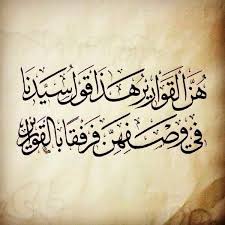 هُنَّ القَوَارِيرُ هَذَا قَوْلُ سَيِّدِنَا
فِي وَصْفِهِنَّ فَرِفْقًا بِالقَوَارِيرِ